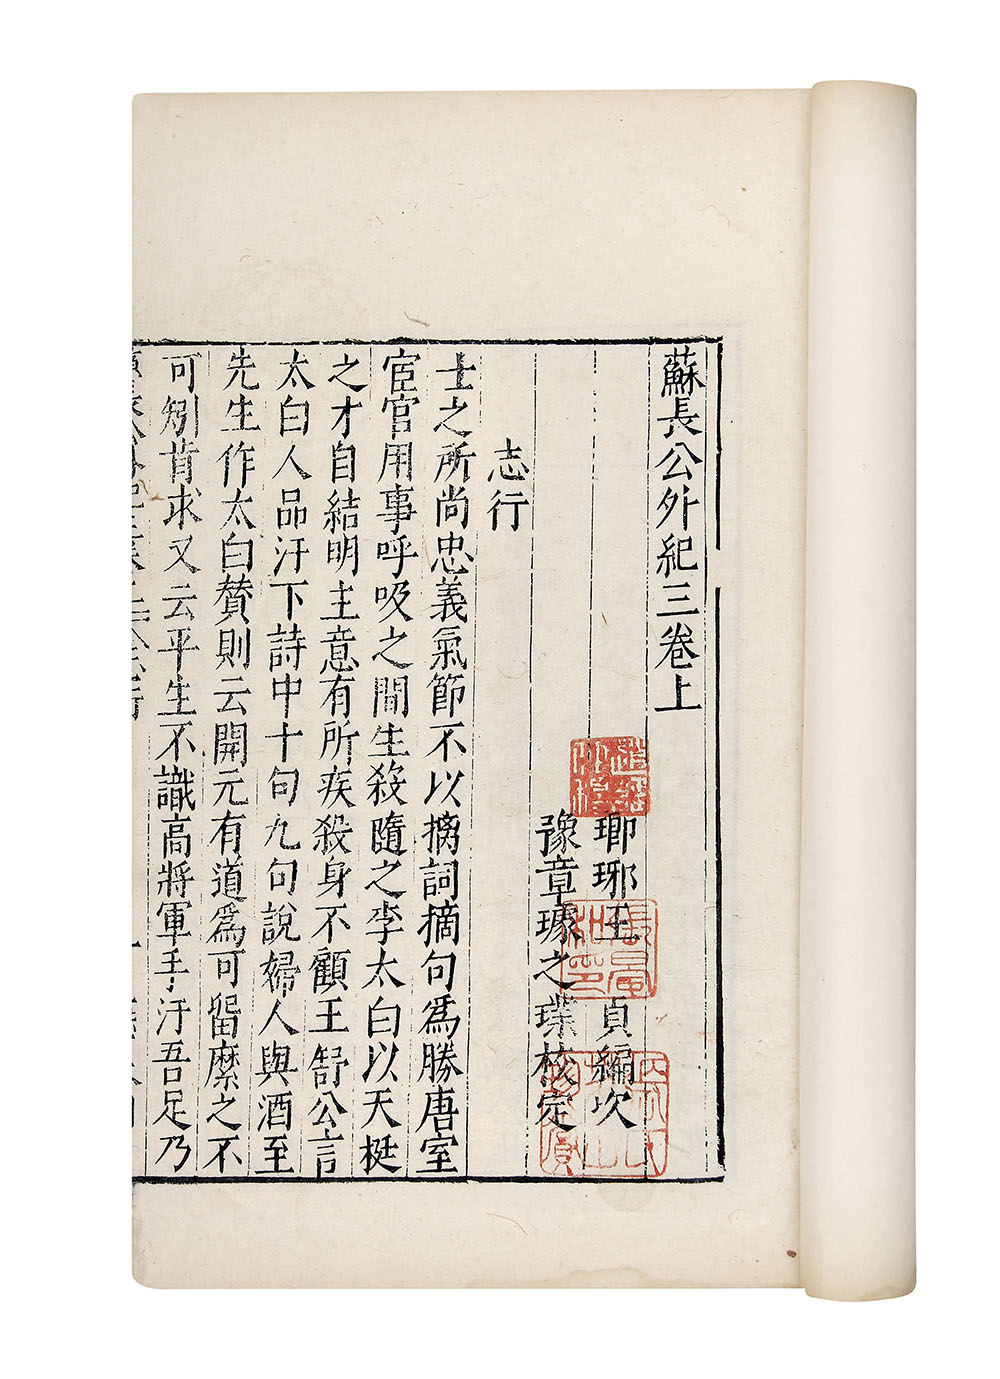 蘇長公外紀三卷上
瑯琊王 貞編次
豫章璩之璞校定
志行
士之所尚忠義氣節不以摛詞摘句為勝唐室
宦官用事呼吸之間生殺隨之李太白以天挺
之才自結明主意有所疾殺身不顧王舒公言
太白人品汙下詩中十句九句說婦人與酒至
先生作太白贊則云開元有道為可留縻之不
可矧肯求又云平生不識高將軍手汙吾足乃